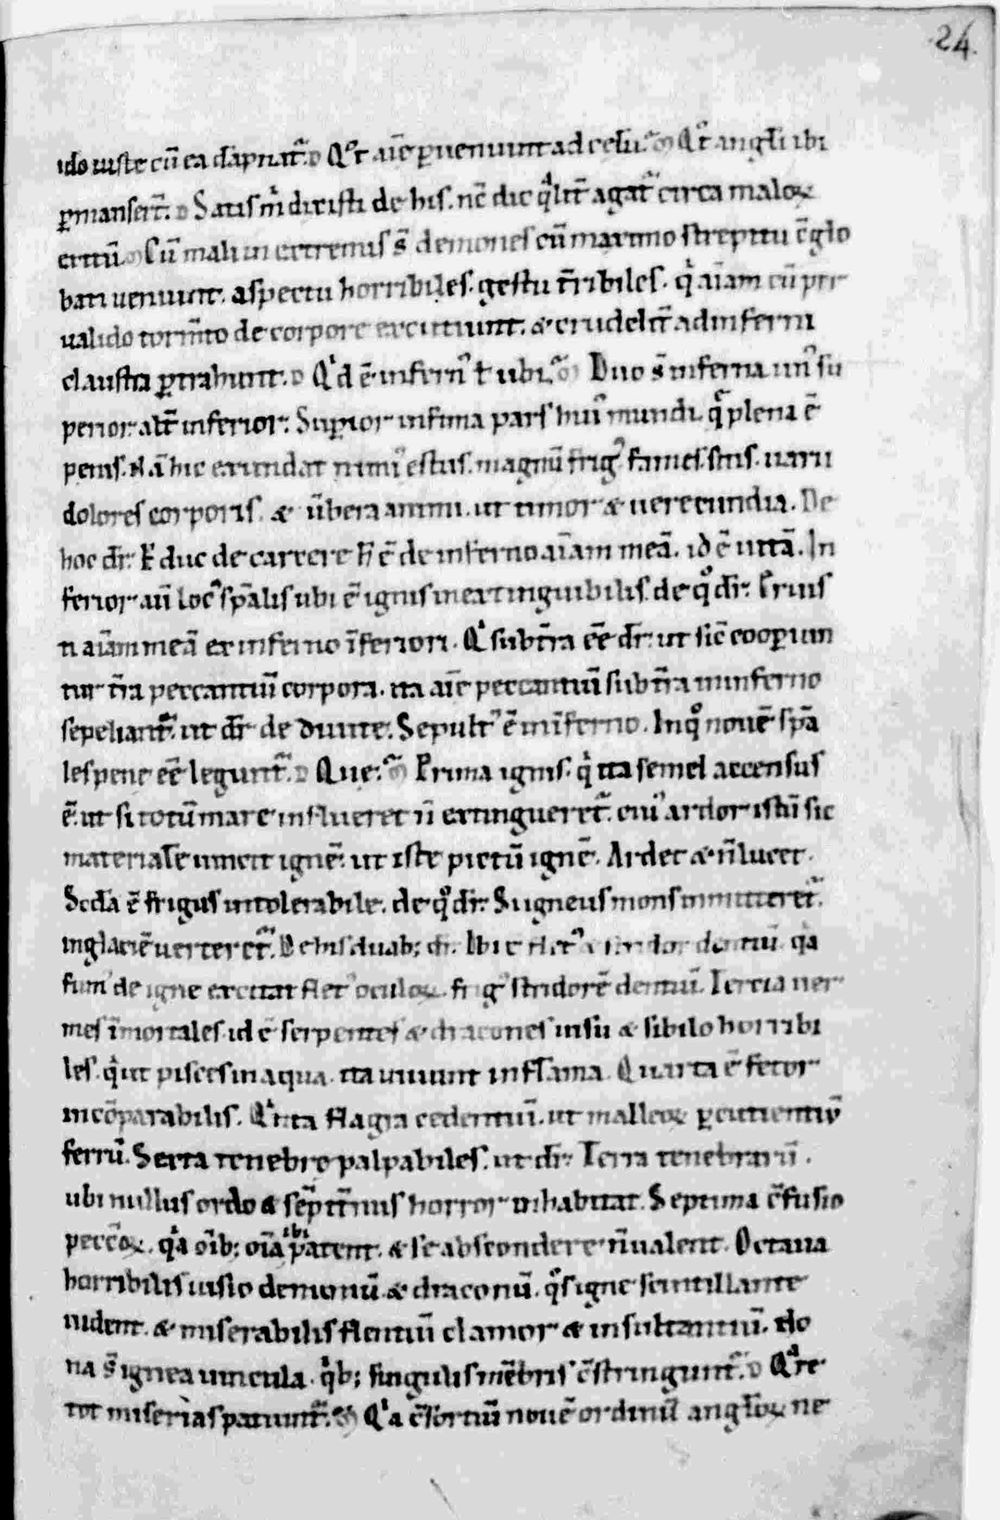 24.
ido iuste cū ea dāpnat᷑. D Qͦt aīe ꝑueniunt ad celū. ᷑ M Qͦt angłi ibi
ꝑmanser̄t. D Satis m̄ dixisti de his. nc̄ dic qͣlit᷑ agat᷑ circa maloꝝ
exitū. M Cū mali in extremis s̄t demones cū maximo strepitu c̄glo
bati ueniunt. aspectu horribiles. gestu t̄ribiles. qͥ aīam cū p
ualido torm̄to de corpore excutiunt. & crudelit᷑ ad inferni
claustra ꝑtrahunt. D Qͥd ē infernꝰ ł ubi. M Duo s̄ inferna unꝰ su
perior. alt᷑ inferior. Suꝑior infima pars huiꝰ mundi. q̄ plena ē
penis. Nā hic exundat nimiꝰ estus. magnū frigꝰ. fames. sitis. uarii
dolores corporis. & ūbera animi. ut timor & uerecundia. De
hoc dr̄. E duc de carcere h̄ ē de inferno aīam meā. id ē uitā. In
ferior. aū locꝰ spālis ubi ē ignis inextinguibilis. de qͦ dr̄. Eruis
ti aīam meā ex inferno īferiori. Qͥ sub t̄ra eē dr̄. ut sic̄ cooꝑiun
tur t̄ra peccantiū corpora. ita aīe peccantiū sub t̄ra in inferno
sepeliant᷑. ut dr̄ de diuite. Sepultꝰ ē in īferno. In qͦ nouē spā
les pene eē legunt᷑. D Que. M Prima ignis. qͥ ita semel accensus
ē. ut si totū mare influeret n̄ extingueret᷑. cuiꝰ ardor istū sic
materialē uincit ignē. ut iste pictū ignē. Ardet & n̄ lucet.
Scd̄a ē frigus intolerabile. de qͦ dr̄. Si igneus mons inmitteret᷑.
in glaciē uerteret᷑. De his duab; dr̄. Ibi ē fletꝰ & stridor dentiū. qͣa
fumꝰ de igne excitat fletꝰ oculoꝝ. frigꝰ stridorē dentiū. Tercia uer
mes īmortales. id ē serpentes & dracones uisu & sibilo horribi
les. qͥ ut pisces in aqua. ita uiuunt in flāma. Quarta ē fetor
incōparabilis. Qͥnta flagra cedentiū. ut malleoꝝ ꝑcutientiū
ferrū. Sexta tenebrę palpabiles. ut dr̄. Terra tenebrarū.
ubi nullus ordo & sēpit̄nus horror inhabitat. Septima c̄fusio
peccōꝝ. qͣa oīb; oīa ibi patent. & se abscondere n̄ ualent. Octaua
horribilis uisio demonū & draconū. qͦs igne scintillante
uident. & miserabilis flentiū clamor & insultantiū. No
na s̄ ignea uincula. qͥb; singulis mēbris c̄stringunt᷑. D Qͣre
tot miserias patiunt᷑. M Qͥa c̄sortiū nouē ordinū angłoꝝ ne